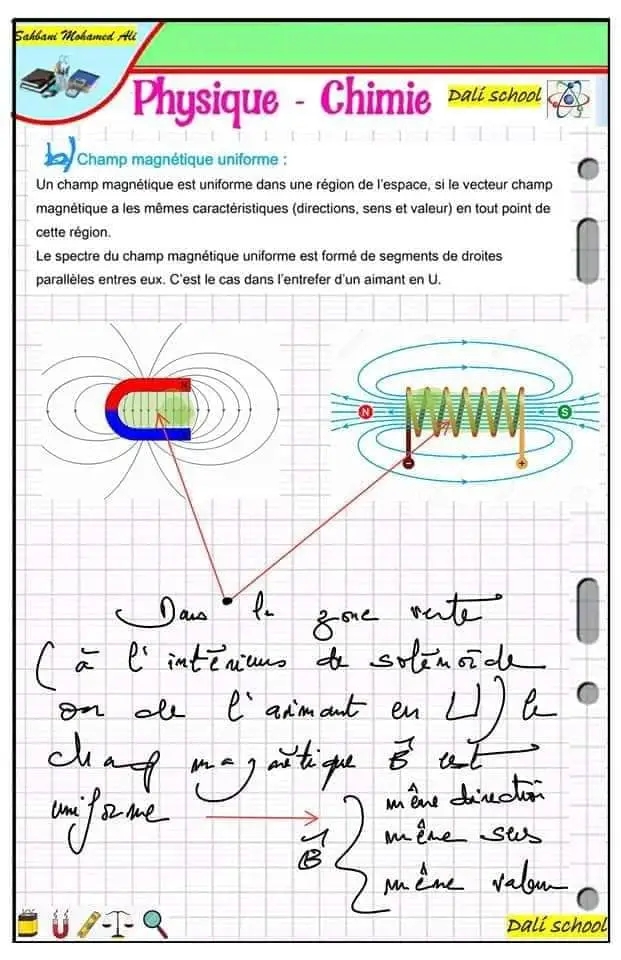 Sahbani Mohamed Ali
Physique - Chimie
Dali school
b) Champ magnétique uniforme :
Un champ magnétique est uniforme dans une région de l'espace, si le vecteur champ
magnétique a les mêmes caractéristiques (directions, sens et valeur) en tout point de
cette région.
Le spectre du champ magnétique uniforme est formé de segments de droites
parallèles entres eux. C'est le cas dans l'entrefer d'un aimant en U.
N
S
-
+
Dans la zone verte
( à l'intérieur de solénoïde
ou de l'aimant en U) le
champ magnétique B est
uniforme
B
même direction
même sens
même valeur
Dali school